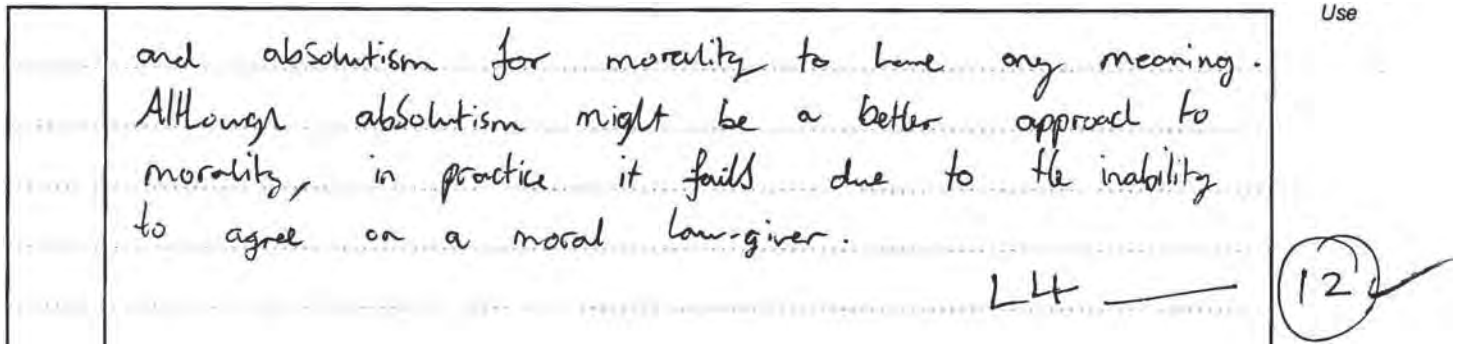 Use
and absolutism for morality to have any meaning.
Although absolutism might be a better approach to
morality, in practice it fails due to the inability
to agree on a moral law-giver.
L4
12